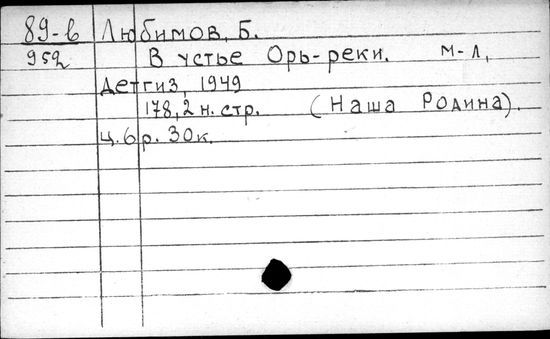 89-в Любимов, Б.
952 В устье Орь-реки. М-Л,
Детгиз, 1949
178,2 н. стр. (Наша Родина).
Ц. 6 р. 30 к.